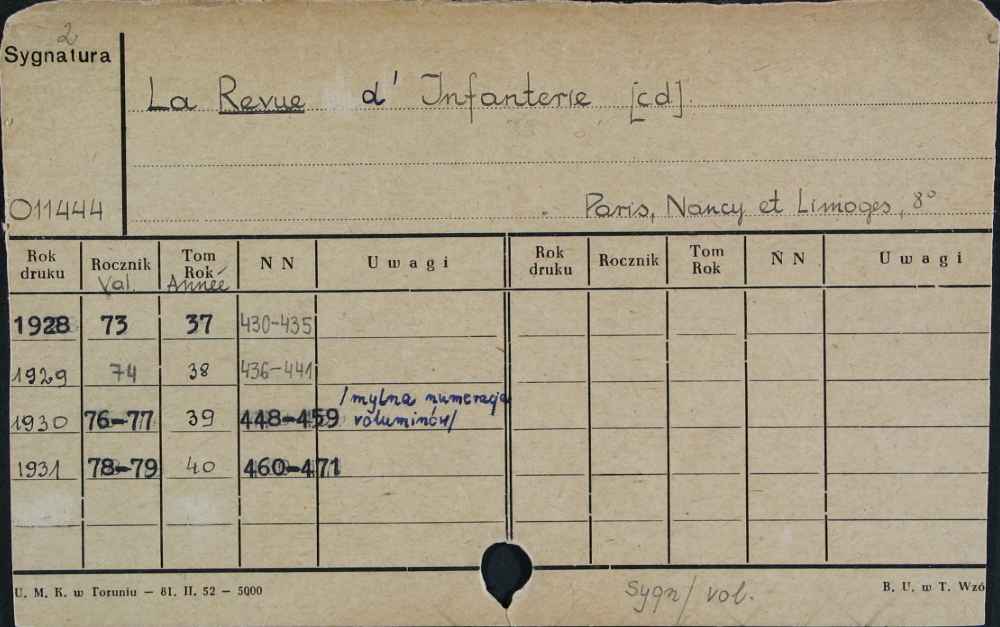 2
Sygnatura
La Revue d' Infanterie [cd].
011444
Paris, Nancy et Limoges, 8°
Rok druku Rocznik Vol. Tom Rok Année N N Uwagi Rok druku Rocznik Tom Rok N N Uwagi
1928 73 37 430-435
1929 74 38 436-441
1930 76-77 39 448-459 /mylna numeracja voluminów/
1931 78-79 40 460-471
U. M. K. w Toruniu — 81. II. 52 — 5000
Sygn/ vol.
B. U. w T. Wzó